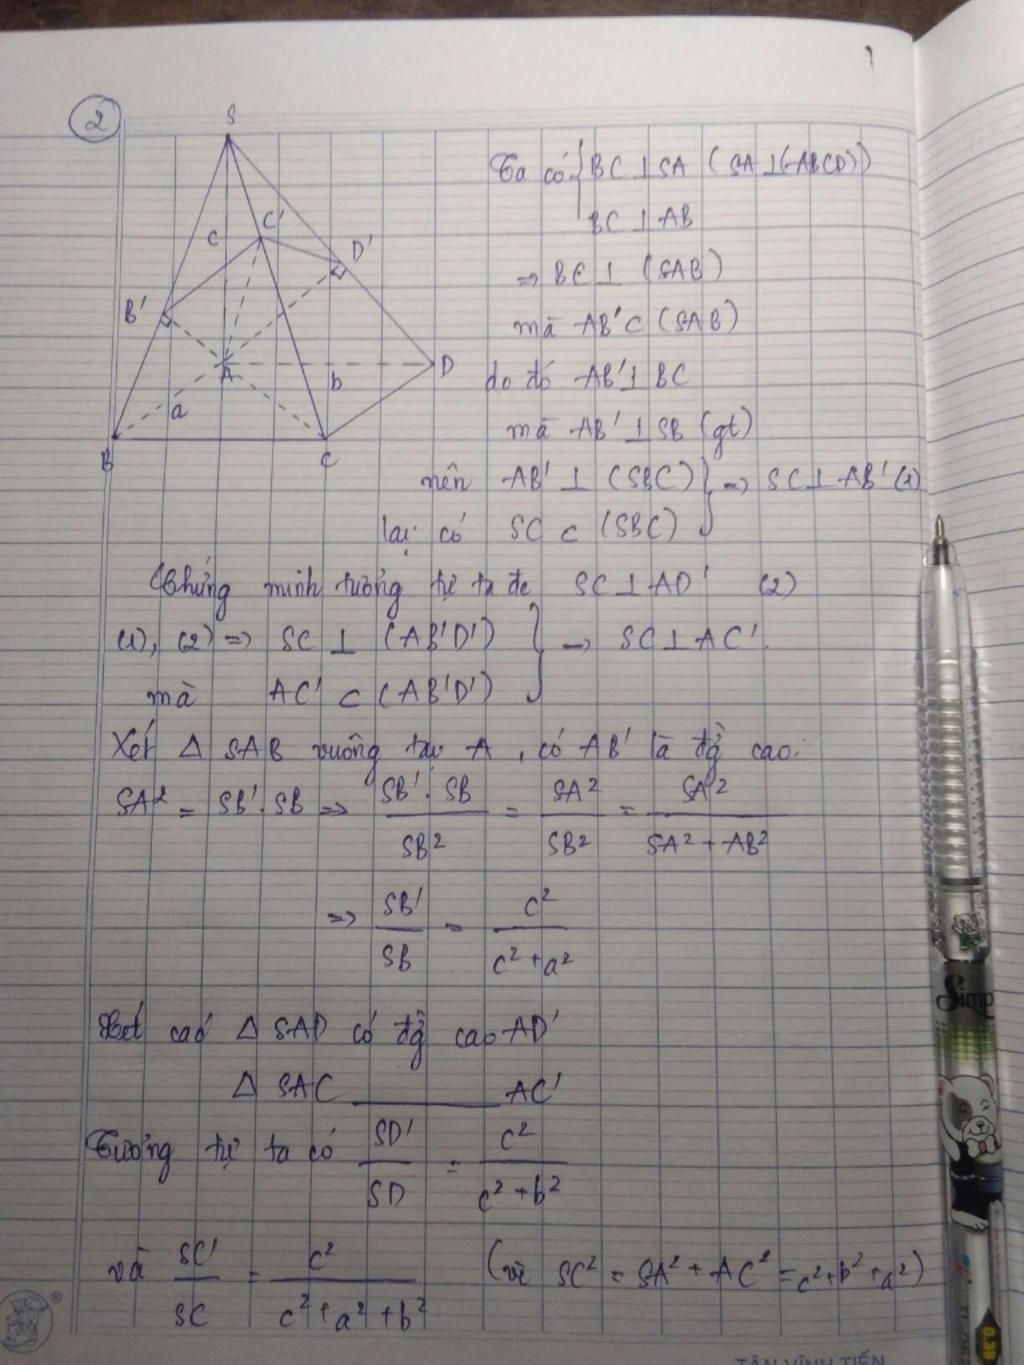 2
S
C'
c
D'
B'
A
D
b
a
B
C
Ta có { BC ⊥ SA (SA ⊥ (ABCD))
BC ⊥ AB
=> BC ⊥ (SAB)
mà AB' ⊂ (SAB)
do đó AB' ⊥ BC
mà AB' ⊥ SB (gt)
nên AB' ⊥ (SBC) } => SC ⊥ AB' (1)
lại có SC ⊂ (SBC)
Chứng minh tương tự ta đc SC ⊥ AD' (2)
(1), (2) => SC ⊥ (AB'D') } => SC ⊥ AC'.
mà AC' ⊂ (AB'D')
Xét Δ SAB vuông tại A, có AB' là đg cao.
SA² = SB'.SB => SB'.SB / SB² = SA² / SB² = SA² / SA² + AB²
=> SB' / SB = c² / c² + a²
Xét các Δ SAD có đg cao AD'
Δ SAC ______ AC'
Tương tự ta có SD' / SD = c² / c² + b²
và SC' / SC = c² / c² + a² + b² (vì SC² = SA² + AC² = c² + b² + a²)
Simp
0.20
TÂN VĨNH TIẾN